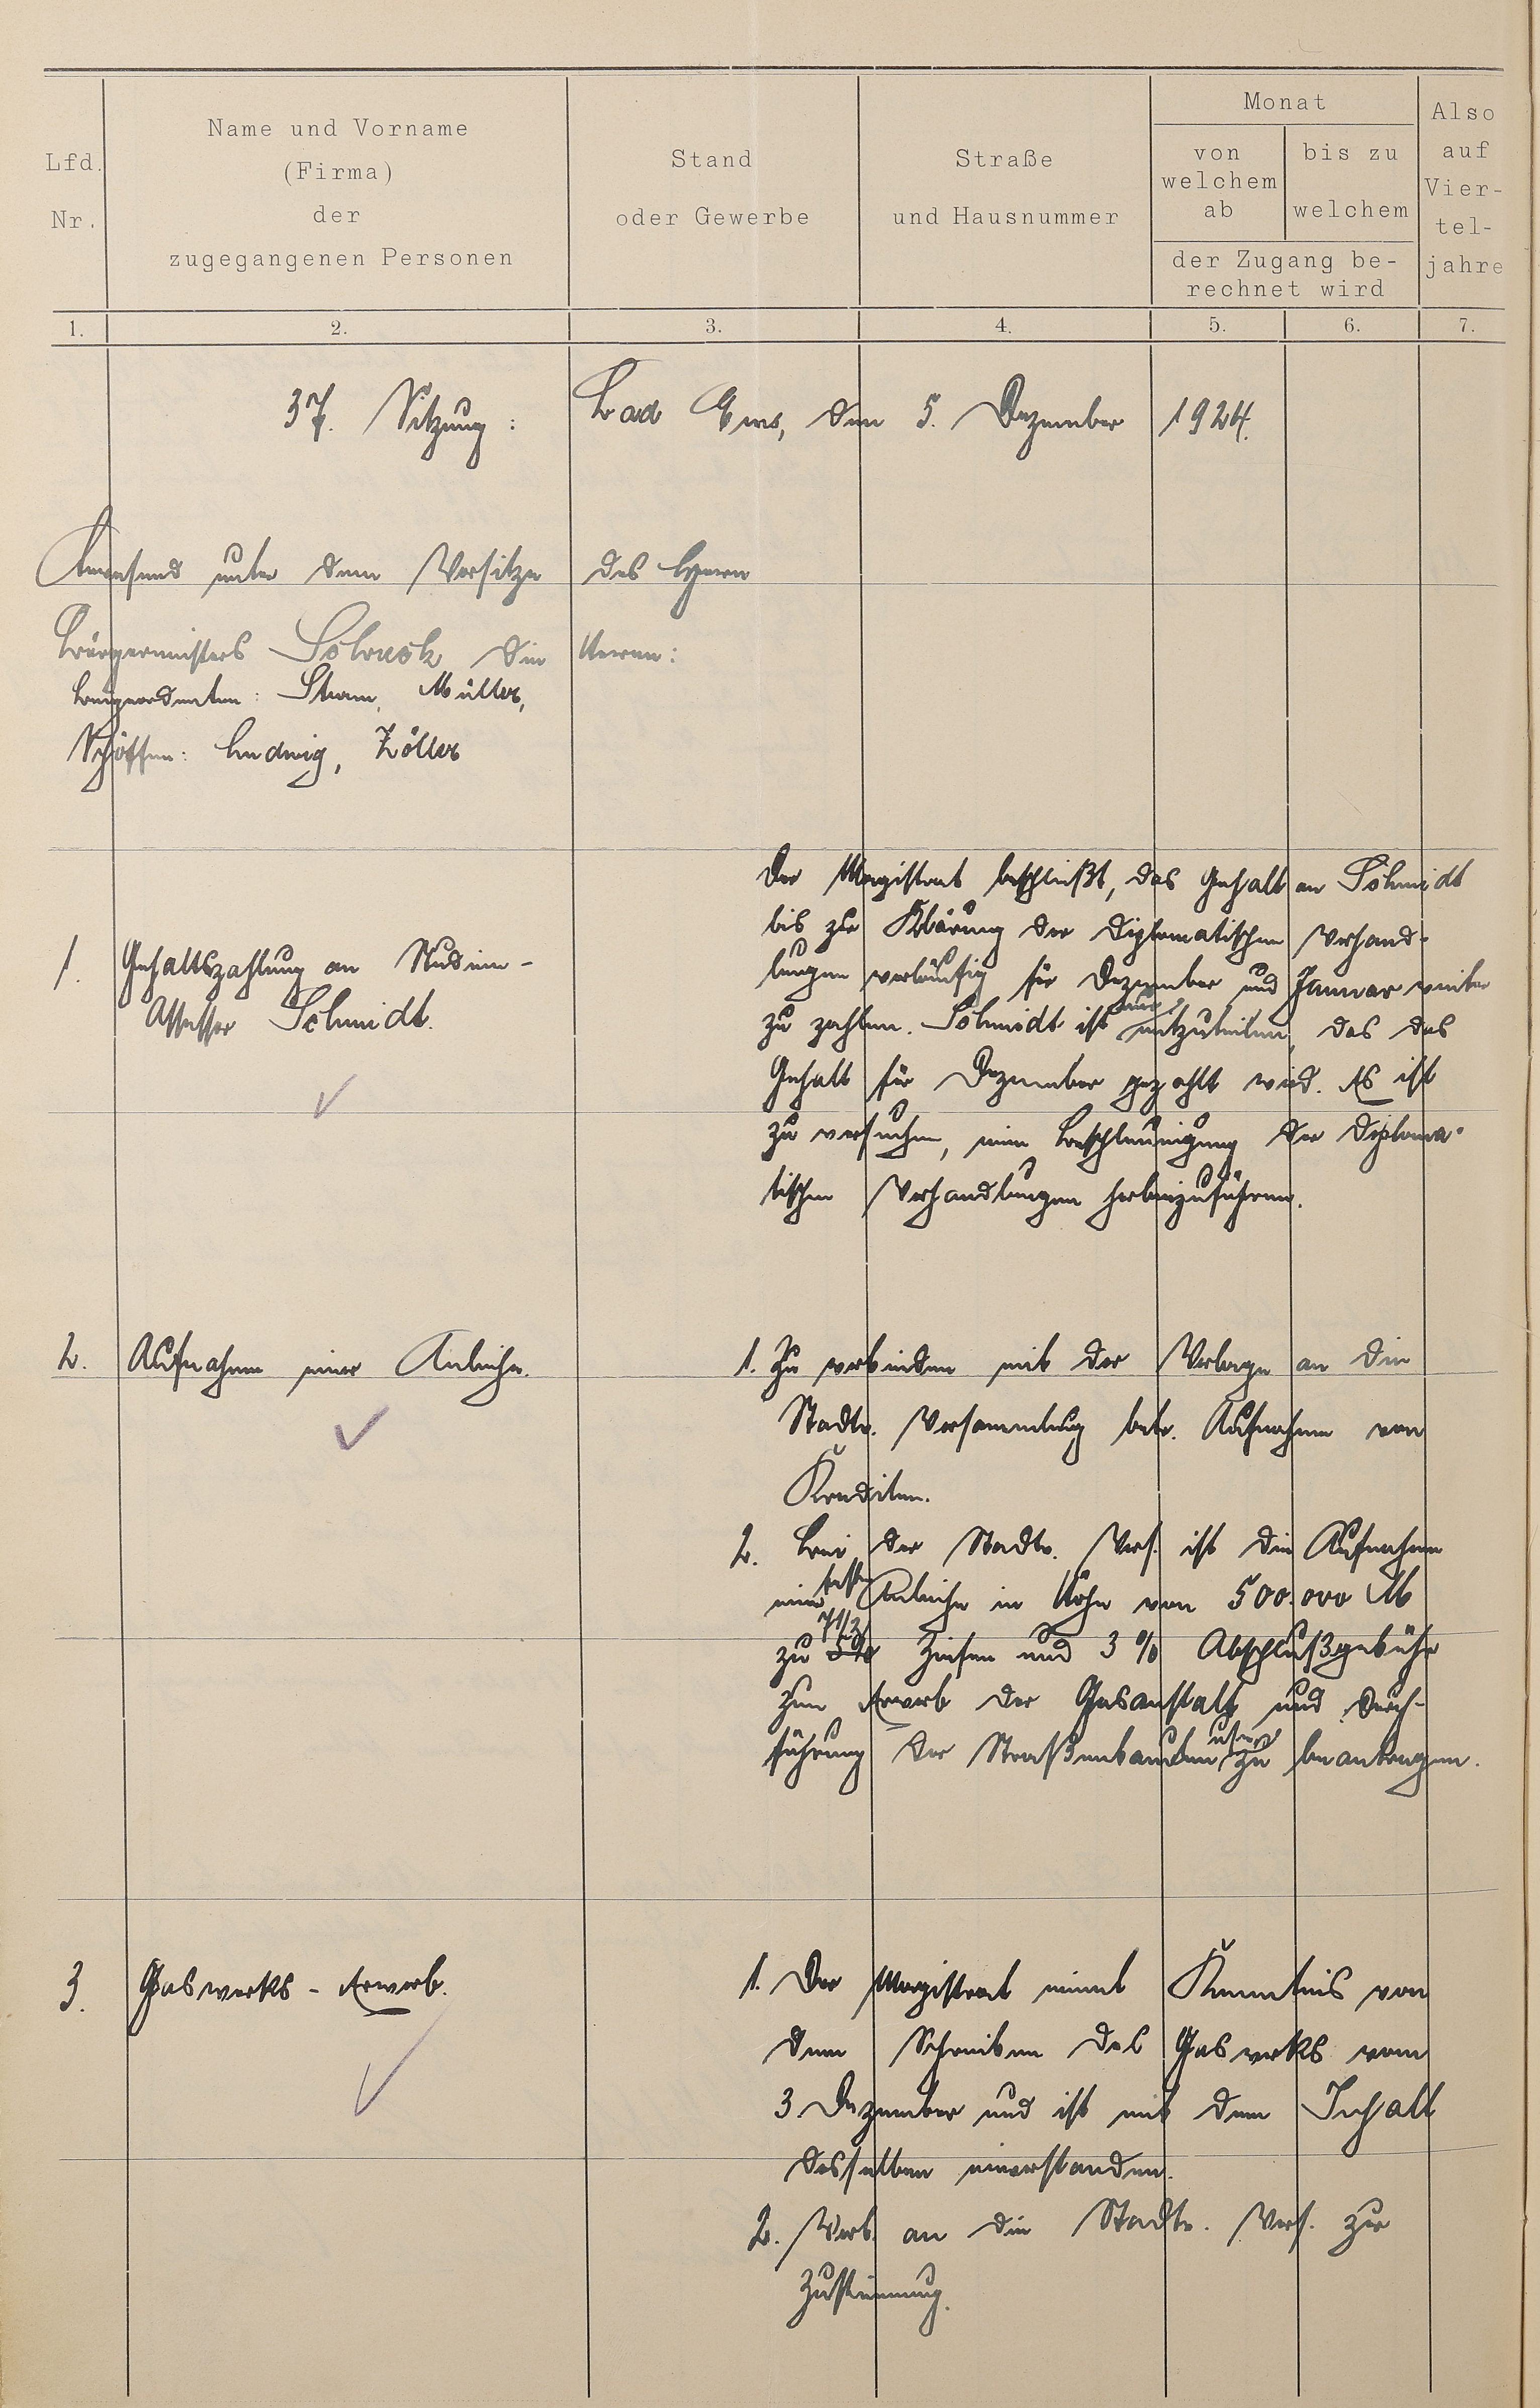 Lfd. Nr.
Name und Vorname
(Firma)
der
zugegangenen Personen
Stand
oder Gewerbe
Straße
und Hausnummer
Monat
von welchem ab
bis zu welchem
der Zugang be-
rechnet wird
Also auf Vier-
tel-
jahre
1. 2. 3. 4. 5. 6. 7.
37. Sitzung: Bad Ems, den 5. Dezember 1924.
Anwesend unter dem Vorsitze des Herrn
Bürgermeisters Schreck die Herren:
Beigeordneten: Thum, Müller,
Schöffen: Ludwig, Zöller
1. Gehaltszahlung an Studien-
Assessor Schmidt.
Der Magistrat beschließt, das Gehalt an Schmidt
bis zur Klärung der diplomatischen Verhand-
lungen vorläufig für Dezember und Januar weiter
zu zahlen. Schmidt ist nur mitzuteilen, das das
Gehalt für Dezember gezahlt wird. Es ist
zu versuchen, eine Beschleunigung der diploma-
tischen Verhandlungen herbeizuführen.
2. Aufnahme einer Anleihe.
1. Zu verbinden mit der Vorlage an die
Stadtv. Versammlung betr. Aufnahme von
Krediten.
2. Bei der Stadtv. Vers. ist die Aufnahme
einer festen Anleihe in Höhe von 500.000 M
zu 7 1/2 Zinsen und 3% Abschlußgebühr
zum Erwerb der Gasanstalt und Durch-
führung der Straßenbauten usw. zu beantragen.
3. Gaswerks-Erwerb.
1. Der Magistrat nimmt Kenntnis von
dem Schreiben des Gaswerks vom
3. Dezember und ist mit dem Inhalt
desselben einverstanden.
2. Vorl. an die Stadtv. Vers. zur
Zustimmung.